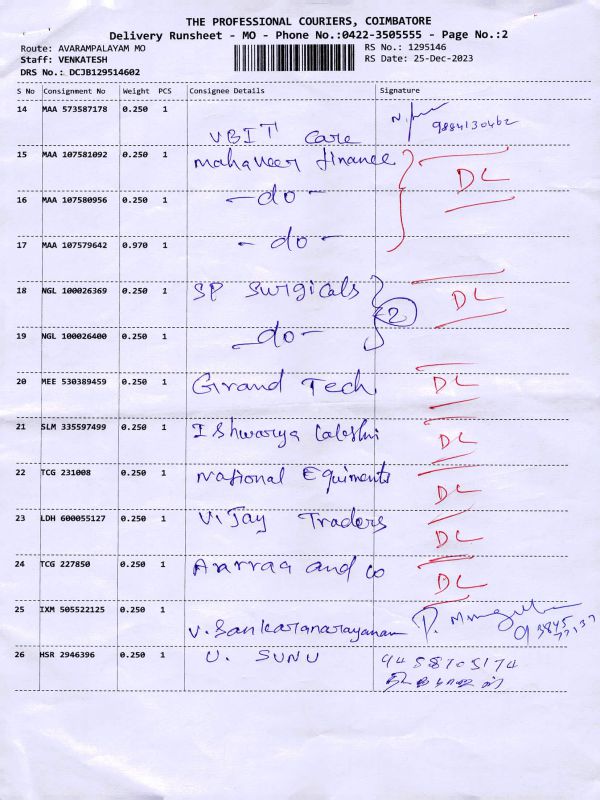 THE PROFESSIONAL COURIERS, COIMBATORE
Delivery Runsheet - MO - Phone No.:0422-3505555 - Page No.:2
Route: AVARAMPALAYAM MO
RS No.: 1295146
Staff: VENKATESH
RS Date: 25-Dec-2023
DRS No.: DCJB129514602
S No Consignment No Weight PCS Consignee Details Signature
14 MAA 573587178 0.250 1
9884130462
VBIT Care
15 MAA 107581092 0.250 1 Mahaveer finance
DL
16 MAA 107580956 0.250 1 -do-
17 MAA 107579642 0.970 1 -do-
18 NGL 100026369 0.250 1 SP Surgicals
2 DL
19 NGL 100026400 0.250 1 -do-
20 MEE 530389459 0.250 1 Grand Tech DL
21 SLM 335597499 0.250 1 Ishwarya DL
22 TCG 231008 0.250 1 National Equiments DL
23 LDH 600055127 0.250 1 Vijay Traders DL
24 TCG 227850 0.250 1 and co DL
25 IXM 505522125 0.250 1
V. Sankaranarayanan
26 HSR 2946396 0.250 1 U. SUNU